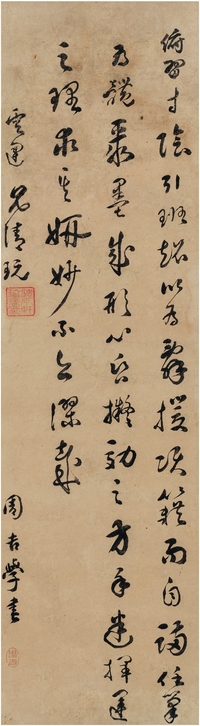 俯習寸陰引班超以為辭援項籍而自滿任筆
為體聚墨成形心昏擬效之方手迷揮運
之理求其妍妙不亦謬哉
雲 兄清玩
周吉學書